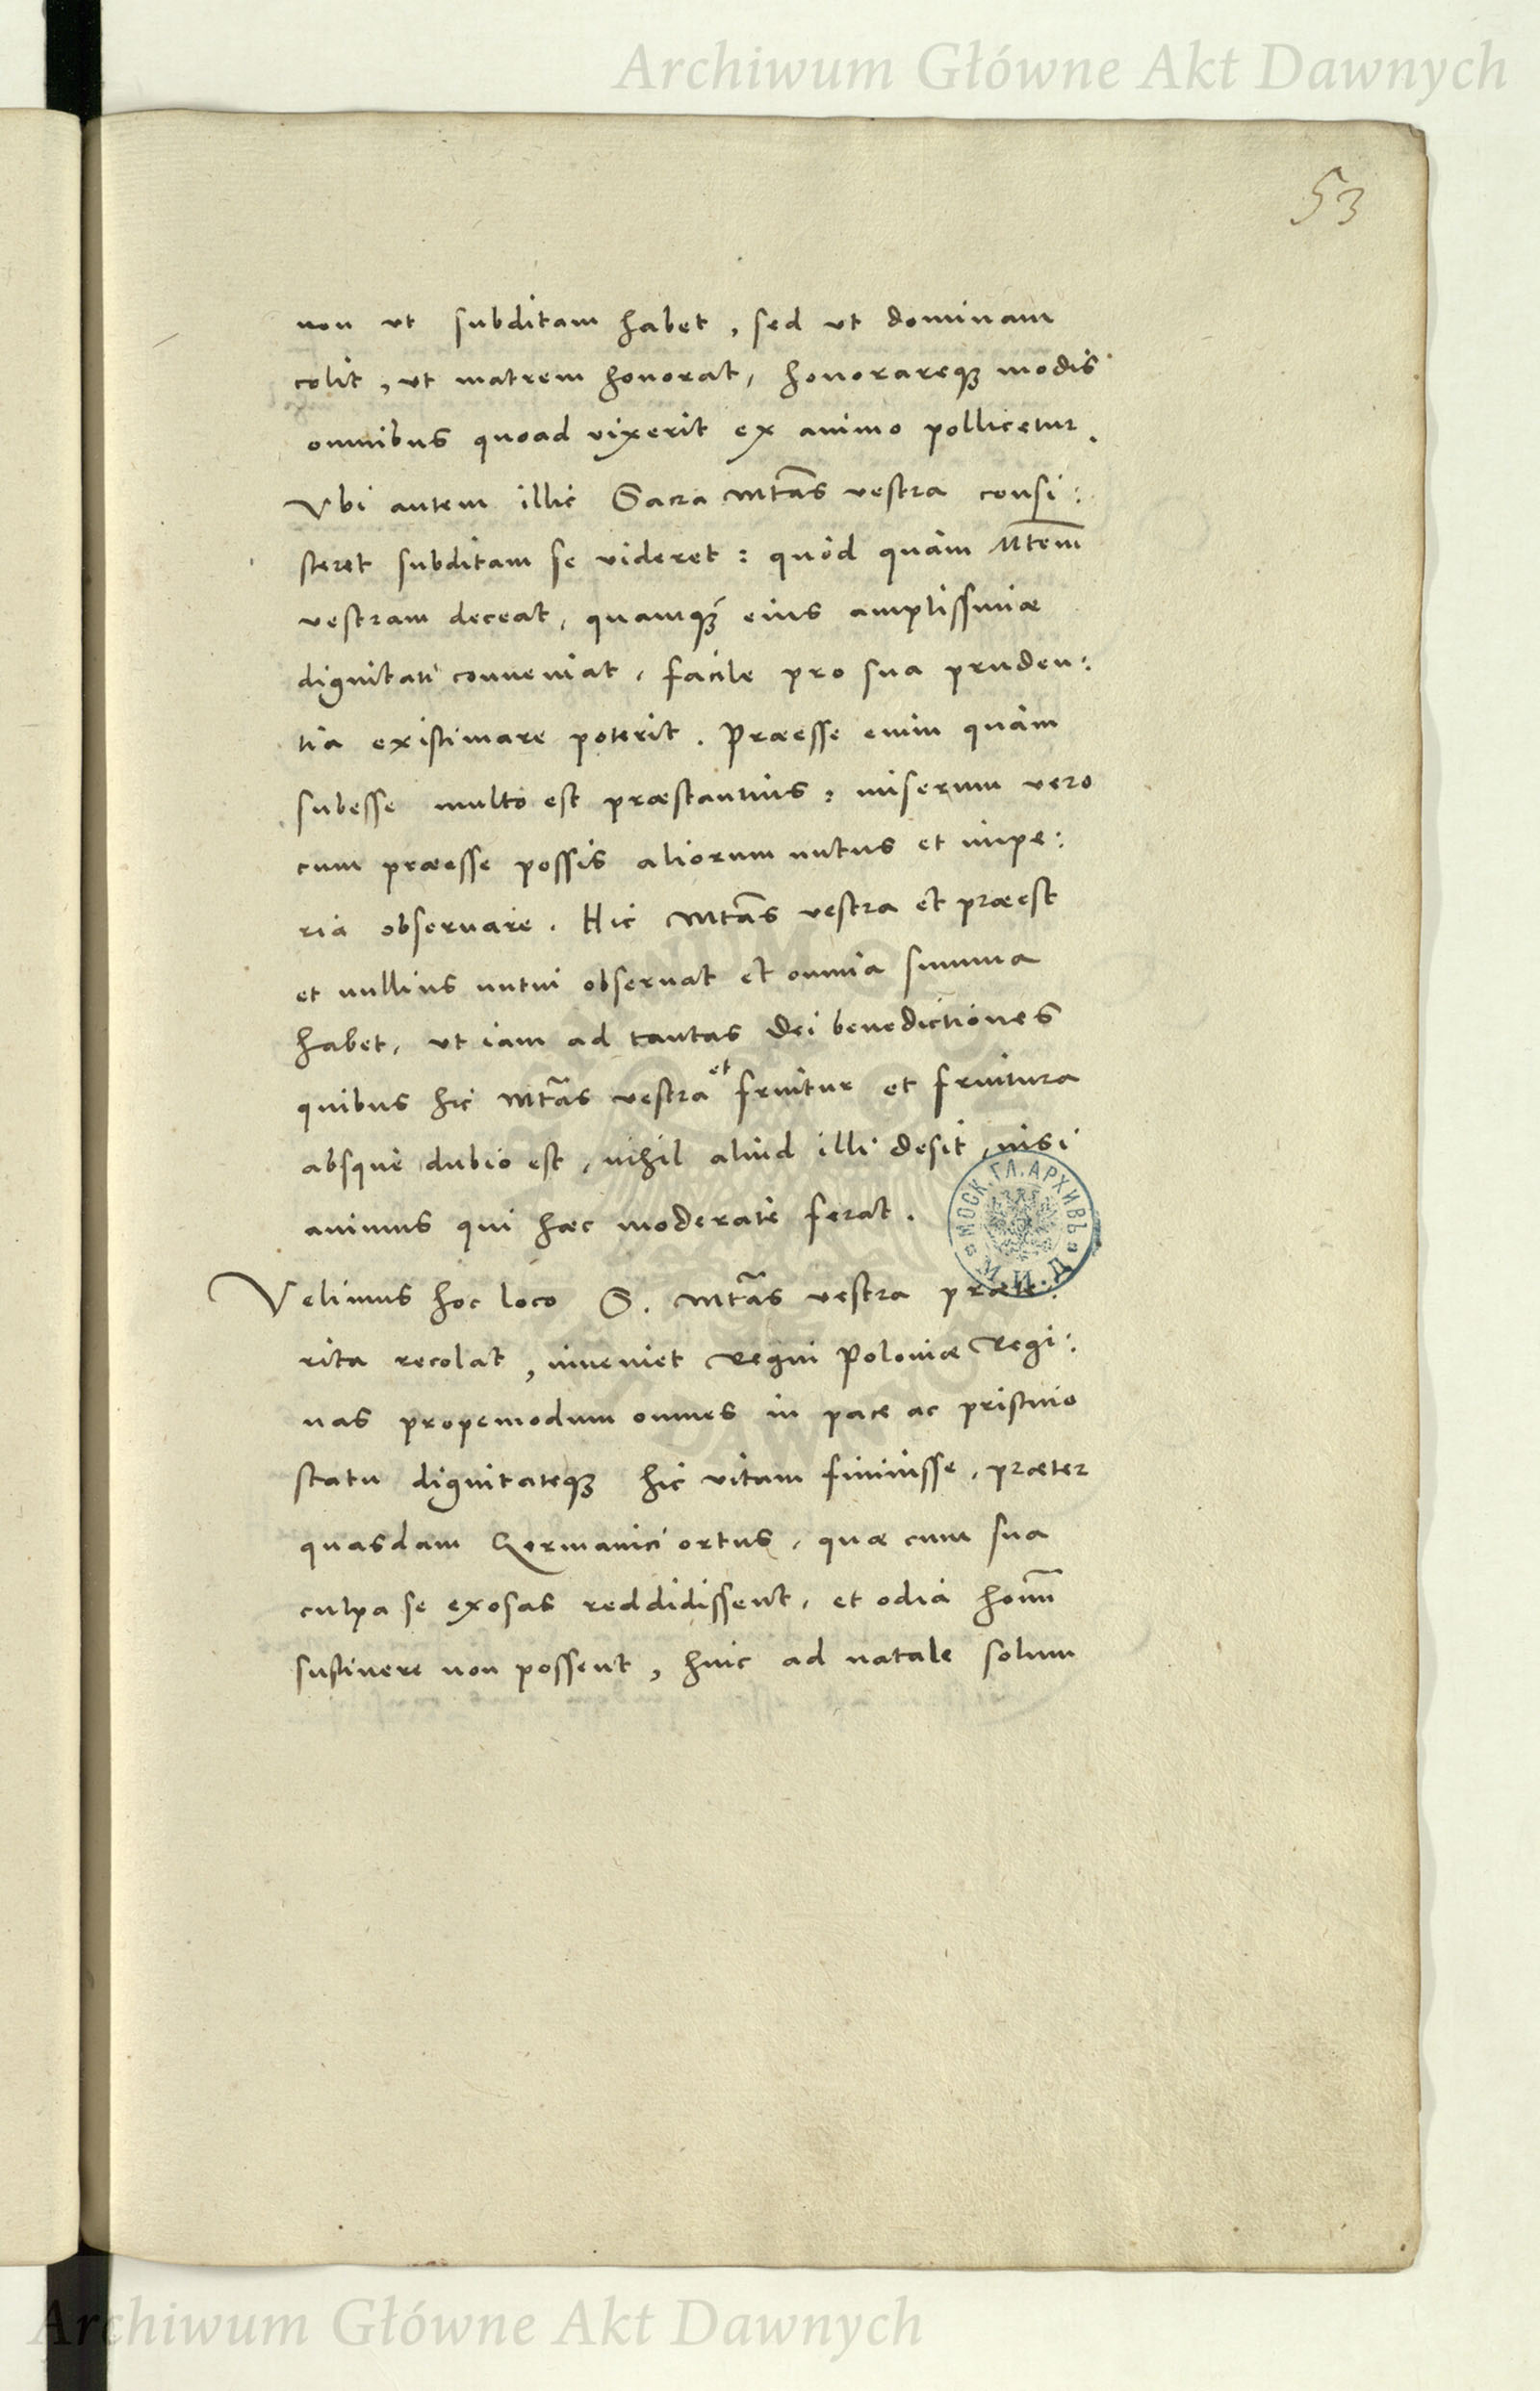 Archiwum Główne Akt Dawnych
53
non ut subditam habet, sed ut dominam
colit, ut matrem honorat, honorareq3 modis
omnibus quoad vixerit ex animo pollicetur.
Vbi autem illic Sacra Mtas vestra consi:
steret subditam se videret: quòd quàm Mtem
vestram deceat, quamq3 eius amplissimæ
dignitati conveniat, facile pro sua pruden:
tia existimare poterit. Præesse enim quàm
subesse multò est præstantius: miserum vero
cum præesse possis aliorum nutus et impe:
ria observare. Hic Mtas vestra et præest
et nullius nutui observat et omnia summa
habet, ut iam ad tantas Dei benedictiones
quibus hic Mtas vestra et fruitur et fruitura
absque dubio est, nihil aliud illi desit, nisi
animus qui hæc moderate ferat.
МОСК. ГЛ. АРХИВЪ М. И. Д.
Velimus hoc loco S. Mtas vestra præte:
rita recolat, inveniet Regni Poloniæ Regi:
nas propemodum omnes in pace ac pristino
statu dignitateq3 hic vitam finivisse, præter
quasdam Germanici ortus, quæ cum sua
culpa se exosas reddidissent, et odia homm
sustinere non possent, huic ad natale solum
Archiwum Główne Akt Dawnych